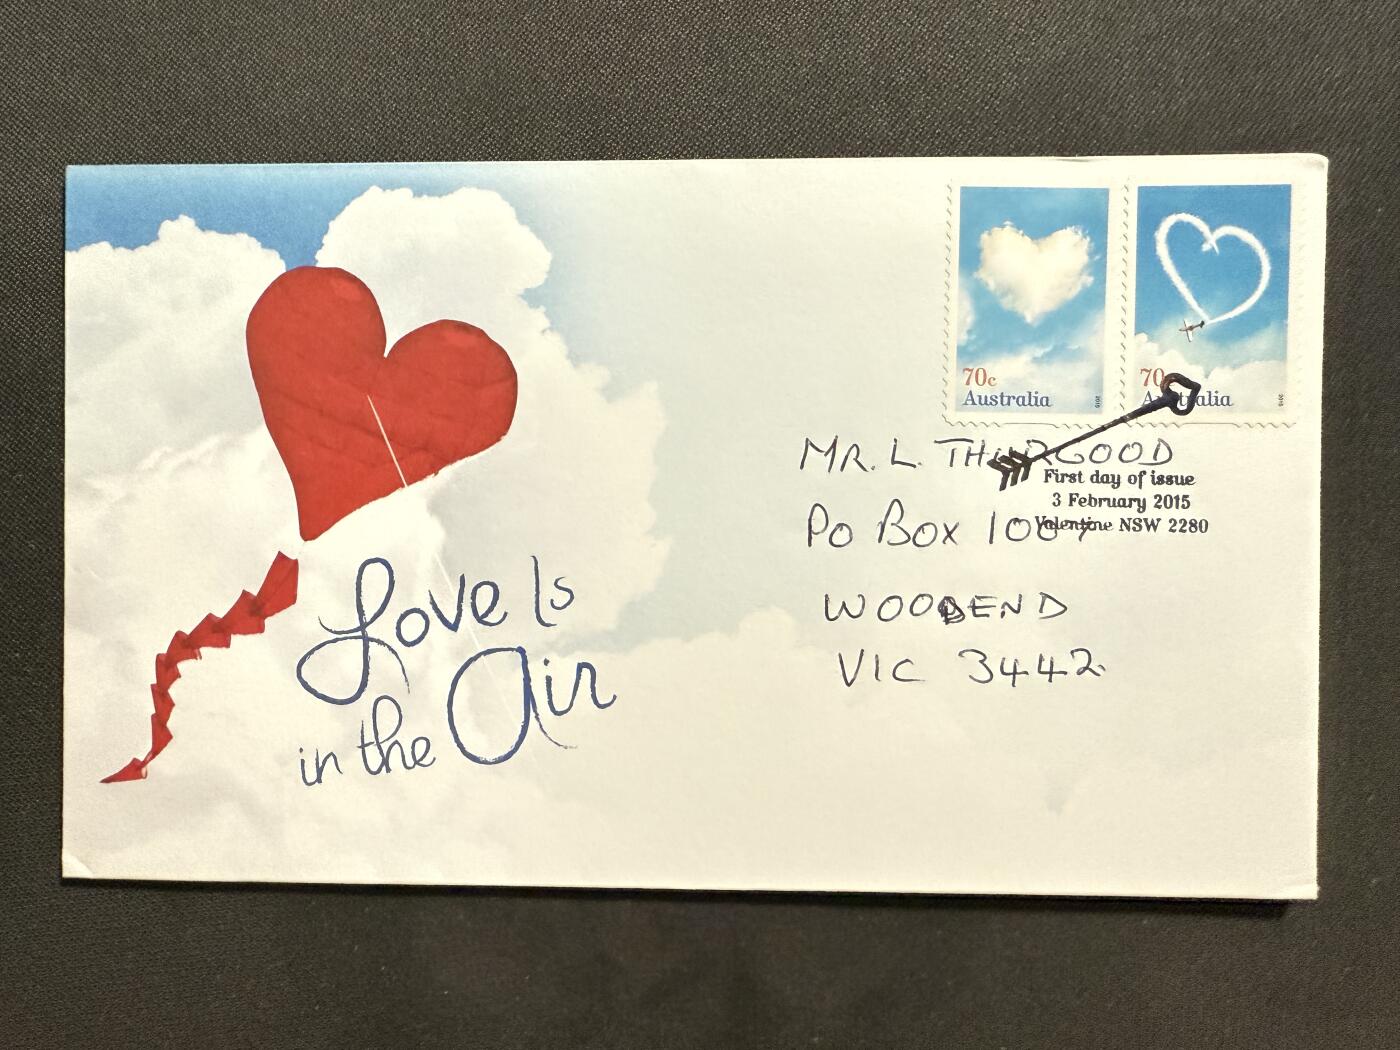 70c
Australia
2015
70c
Australia
2015
MR. L. THURGOOD
First day of issue
3 February 2015
Valentine NSW 2280
PO BOX
WOODEND
VIC 3442
Love Is
in the Air